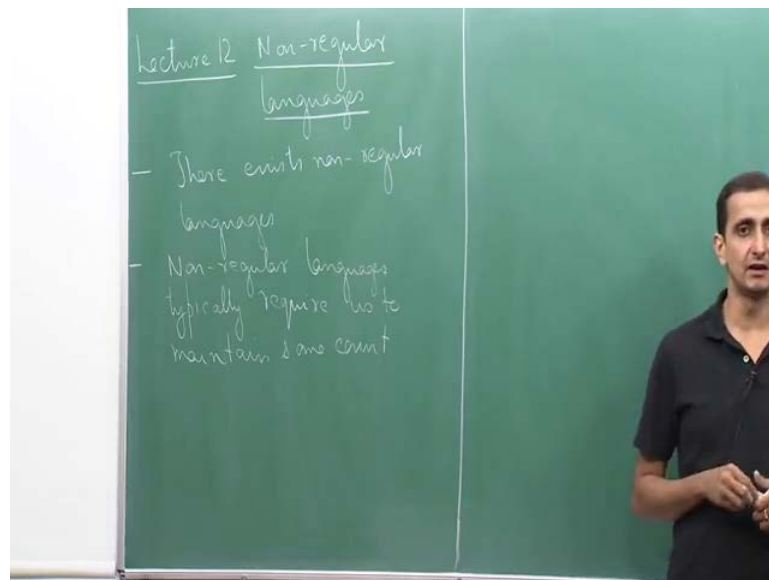 Lecture 12 Non-regular
languages
- There exists non-regular
languages
- Non-regular languages
typically require us to
maintain some count